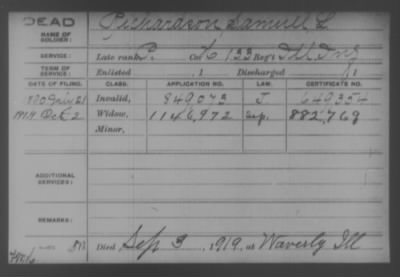 DEAD
NAME OF SOLDIER: Richardson Samuel L
SERVICE: Late rank P. Co K 155 Reg't Ill Inf
TERM OF SERVICE: Enlisted , 1 Discharged , 1
DATE OF FILING. CLASS. APPLICATION NO. LAW. CERTIFICATE NO.
1890 July 21 Invalid, 849,075 J 649,354
1919 Oct 2 Widow, 1146,972 882,769
Minor,
ADDITIONAL SERVICES:
REMARKS:
Died Sep 3, 1919, at Waverly Ill